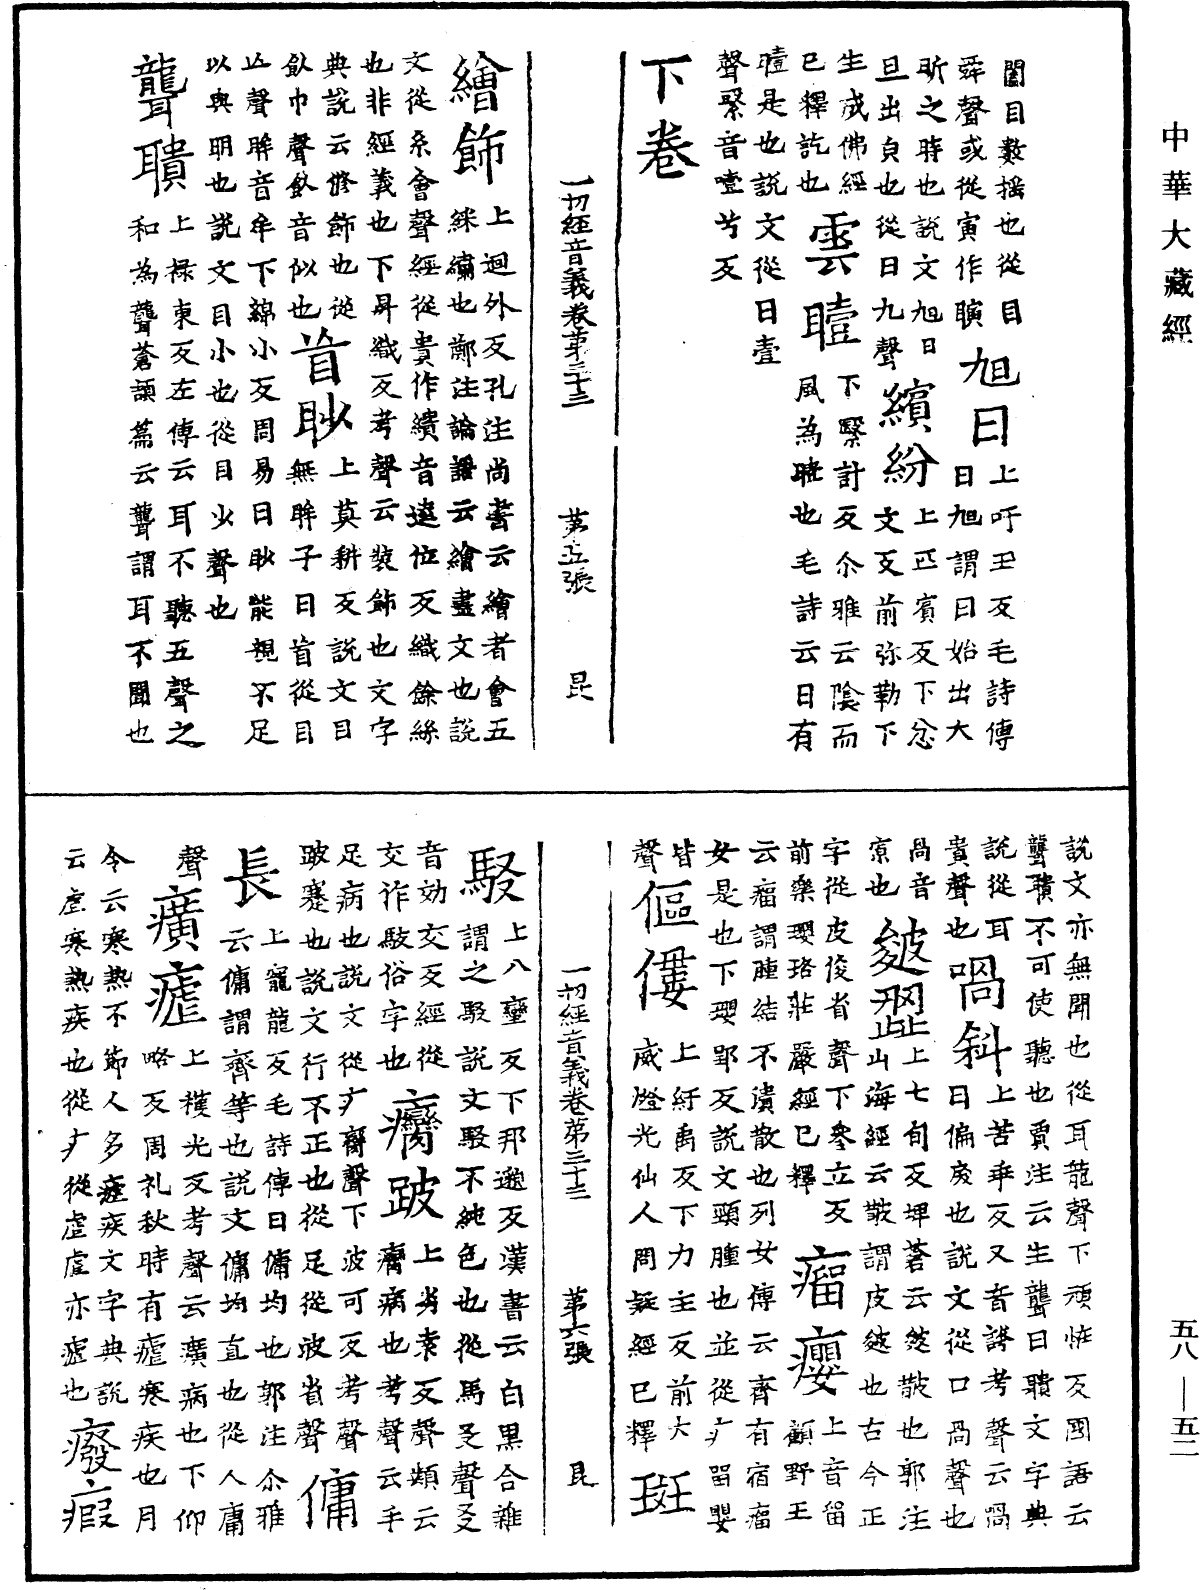 中華大藏經
閶目數搖也從目
舜聲或從寅作瞚
旭日
上吁玉反毛詩傳
曰旭謂日始出大
昕之時也說文旭日
旦出皃也從日九聲
繽紛
上匹賓反下忿
文反前弥勒下
生成佛經
已釋訖也
雲曀
下緊計反尒雅云陰而
風為曀也毛詩云日有
曀是也說文從日壹
聲緊音噎兮反
下卷
一切經音義卷第三十三
第五張
昆
繪飾
上迴外反孔注尚書云繪者會五
綵繡也鄭注論語云繪畫文也說
文從糸會聲經從貴作繢音遶位反織餘絲
也非經義也下昇織反考聲云裝飾也文字
典說云修飾也從
飤巾聲飤音似也
䀏眇
上莫耕反說文目
無眸子曰䀏從目
亡聲眸音牟下綿小反周易曰眇能視不足
以與明也說文目小也從目少聲也
聾聵
上祿東反左傳云耳不聽五聲之
和為聾蒼頡篇云聾謂耳不聞也
說文亦無聞也從耳龍聲下頑恠反國語云
聾聵不可使聽也賈注云生聾曰聵文字典
說從耳
貴聲也
喎斜
上苦乖反又音誇考聲云喎
口偏戾也說文從口咼聲也
咼音
㡿也
皴𤿎
上七旬反埤蒼云皴㪚也郭注
山海經云皵謂皮皴也古今正
字從皮俊省聲下參立反
前樂瓔珞莊嚴經已釋
瘤癭
上音留
顧野王
云瘤謂腫結不潰散也列女傳云齊有宿瘤
女是也下瓔郢反說文頸腫也並從疒留嬰
皆
聲
傴僂
上紆禹反下力主反前大
威燈光仙人問疑經已釋
斑
一切經音義卷第三十三
第六張
昆
駁
上八蠻反下邦邈反漢書云白黑合雜
謂之駁說文駁不純色也從馬爻聲爻
音効交反經從
交作駮俗字也
癵跛
上劣專反聲類云
癵病也考聲云手
足病也說文從疒臠聲下波可反考聲
跛蹇也說文行不正也從足從波省聲
傭
長
上寵龍反毛詩傳曰傭均也郭注尒雅
云傭謂齊等也說文傭均直也從人庸
聲
癀瘧
上橫光反考聲云癀病也下仰
略反周礼秋時有瘧寒疾也月
令云寒熱不節人多瘧疾文字典說
云虐寒熱疾也從疒從虐虐亦瘧也
癈瘕
五八—五二